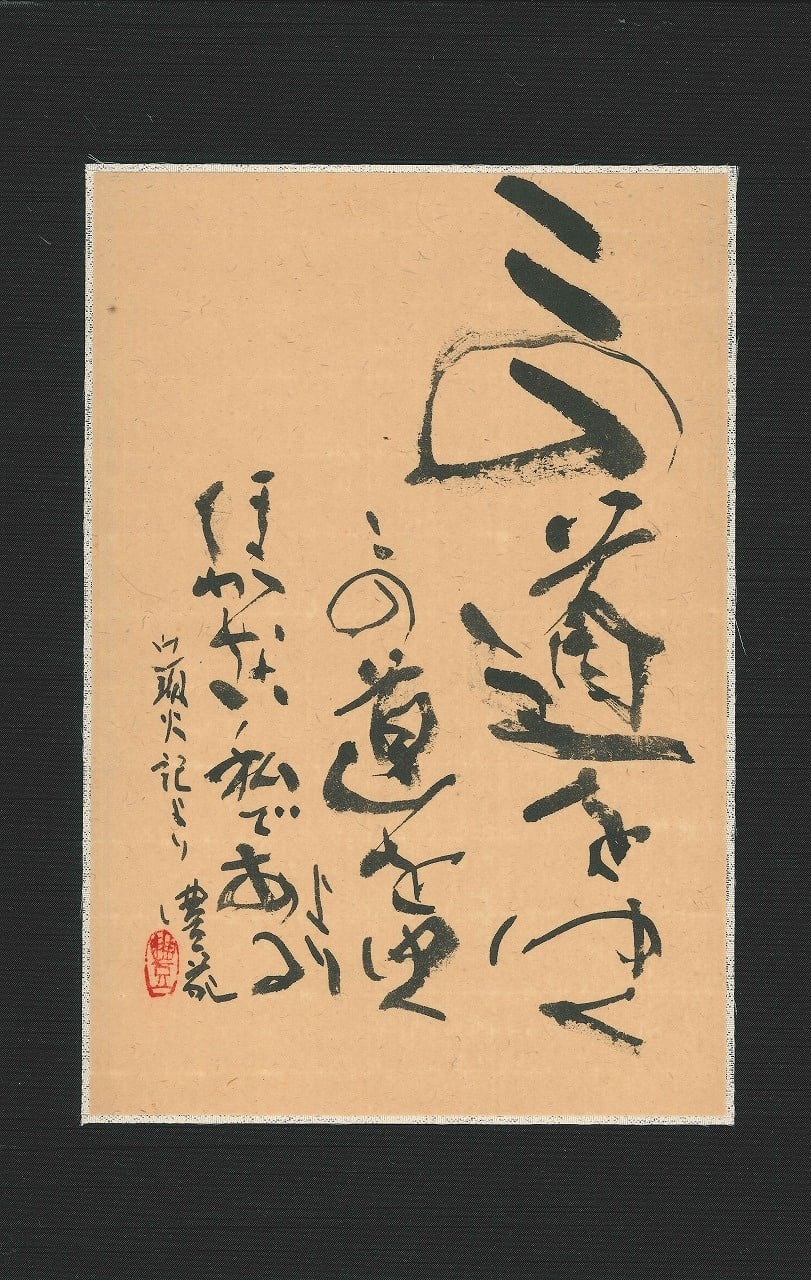 この道をゆく
この道をゆく
より
ほかない私である
山頭火記より